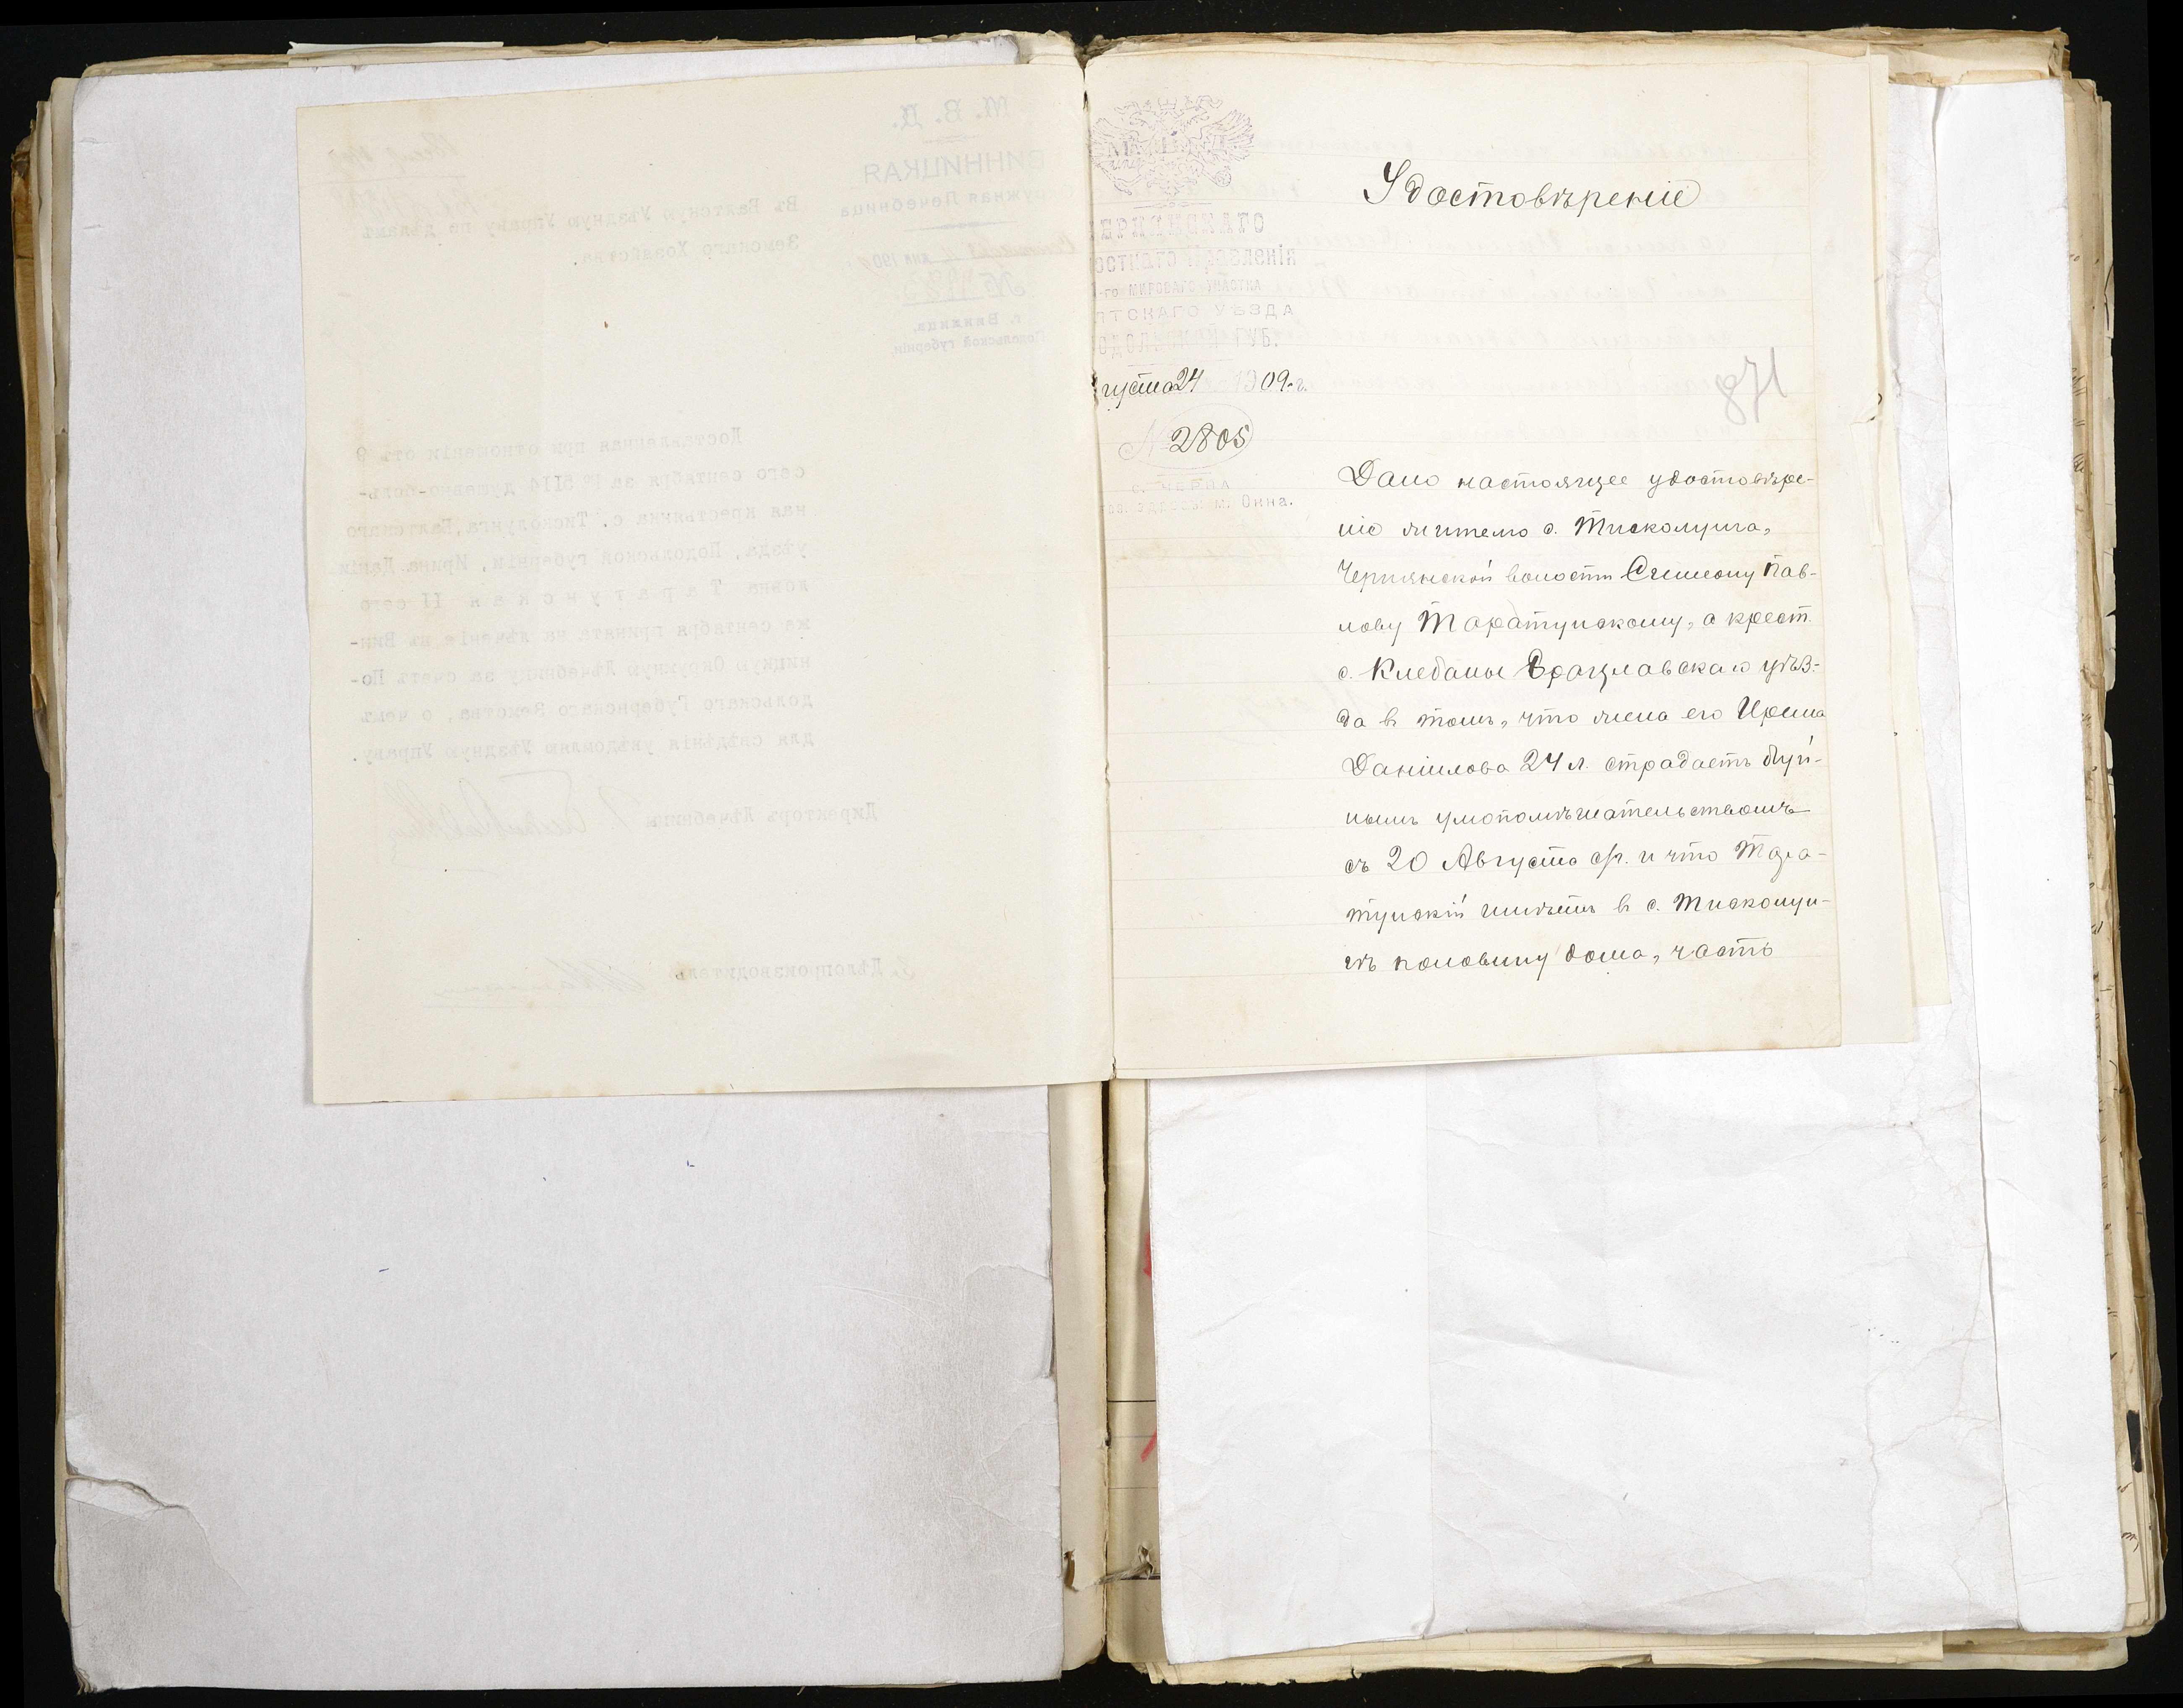 Удостовѣреніе
М. В. Д.
ЕРНЯНСКАГО
остнаго Правленія
-го МИРОВАГО УЧАСТКА
ЛТСКАГО УѢЗДА
ОДОЛЬСКОЙ ГУБ.
густа 24 1909 г.
871
№ 2805
с. ЧЕРНА
м. Окна.
Дано настоящее удостовѣре-
ніе жителю с. Тисколунга,
Чернянской волости Симеону Пав-
лову Таратунскому, а крест.
с. Клебани Брацлавскаго уѣз-
да в томъ, что жена его Ирина
Даніилова 24 л. страдаетъ буй-
нымъ умопомѣшательствомъ
съ 20 Августа с/г. и что Тара-
тунскій имѣетъ в с. Тисколун-
гѣ половину дома, часть
М. В. Д.
ВИННИЦКАЯ
Окружная Лечебница
дня 1909
г. Винница,
Подольской губерніи.
Въ Балтскую Уѣздную Управу по дѣламъ
Земскаго Хозяйства.
Доставленная при отношеніи отъ 9
сего сентября за № 5114 душевно-боль-
ная крестьянка с. Тисколунга, Балтскаго
уѣзда, Подольской губерніи, Ирина Даніи
ловна Таратунская 11 сего
же сентября принята на лѣченіе въ Вин-
ницкую Окружную Лѣчебницу за счетъ По-
дольскаго Губернскаго Земства, о чемъ
для свѣдѣнія увѣдомляю Уѣздную Управу.
Директоръ Лѣчебницы
Дѣлопроизводитель